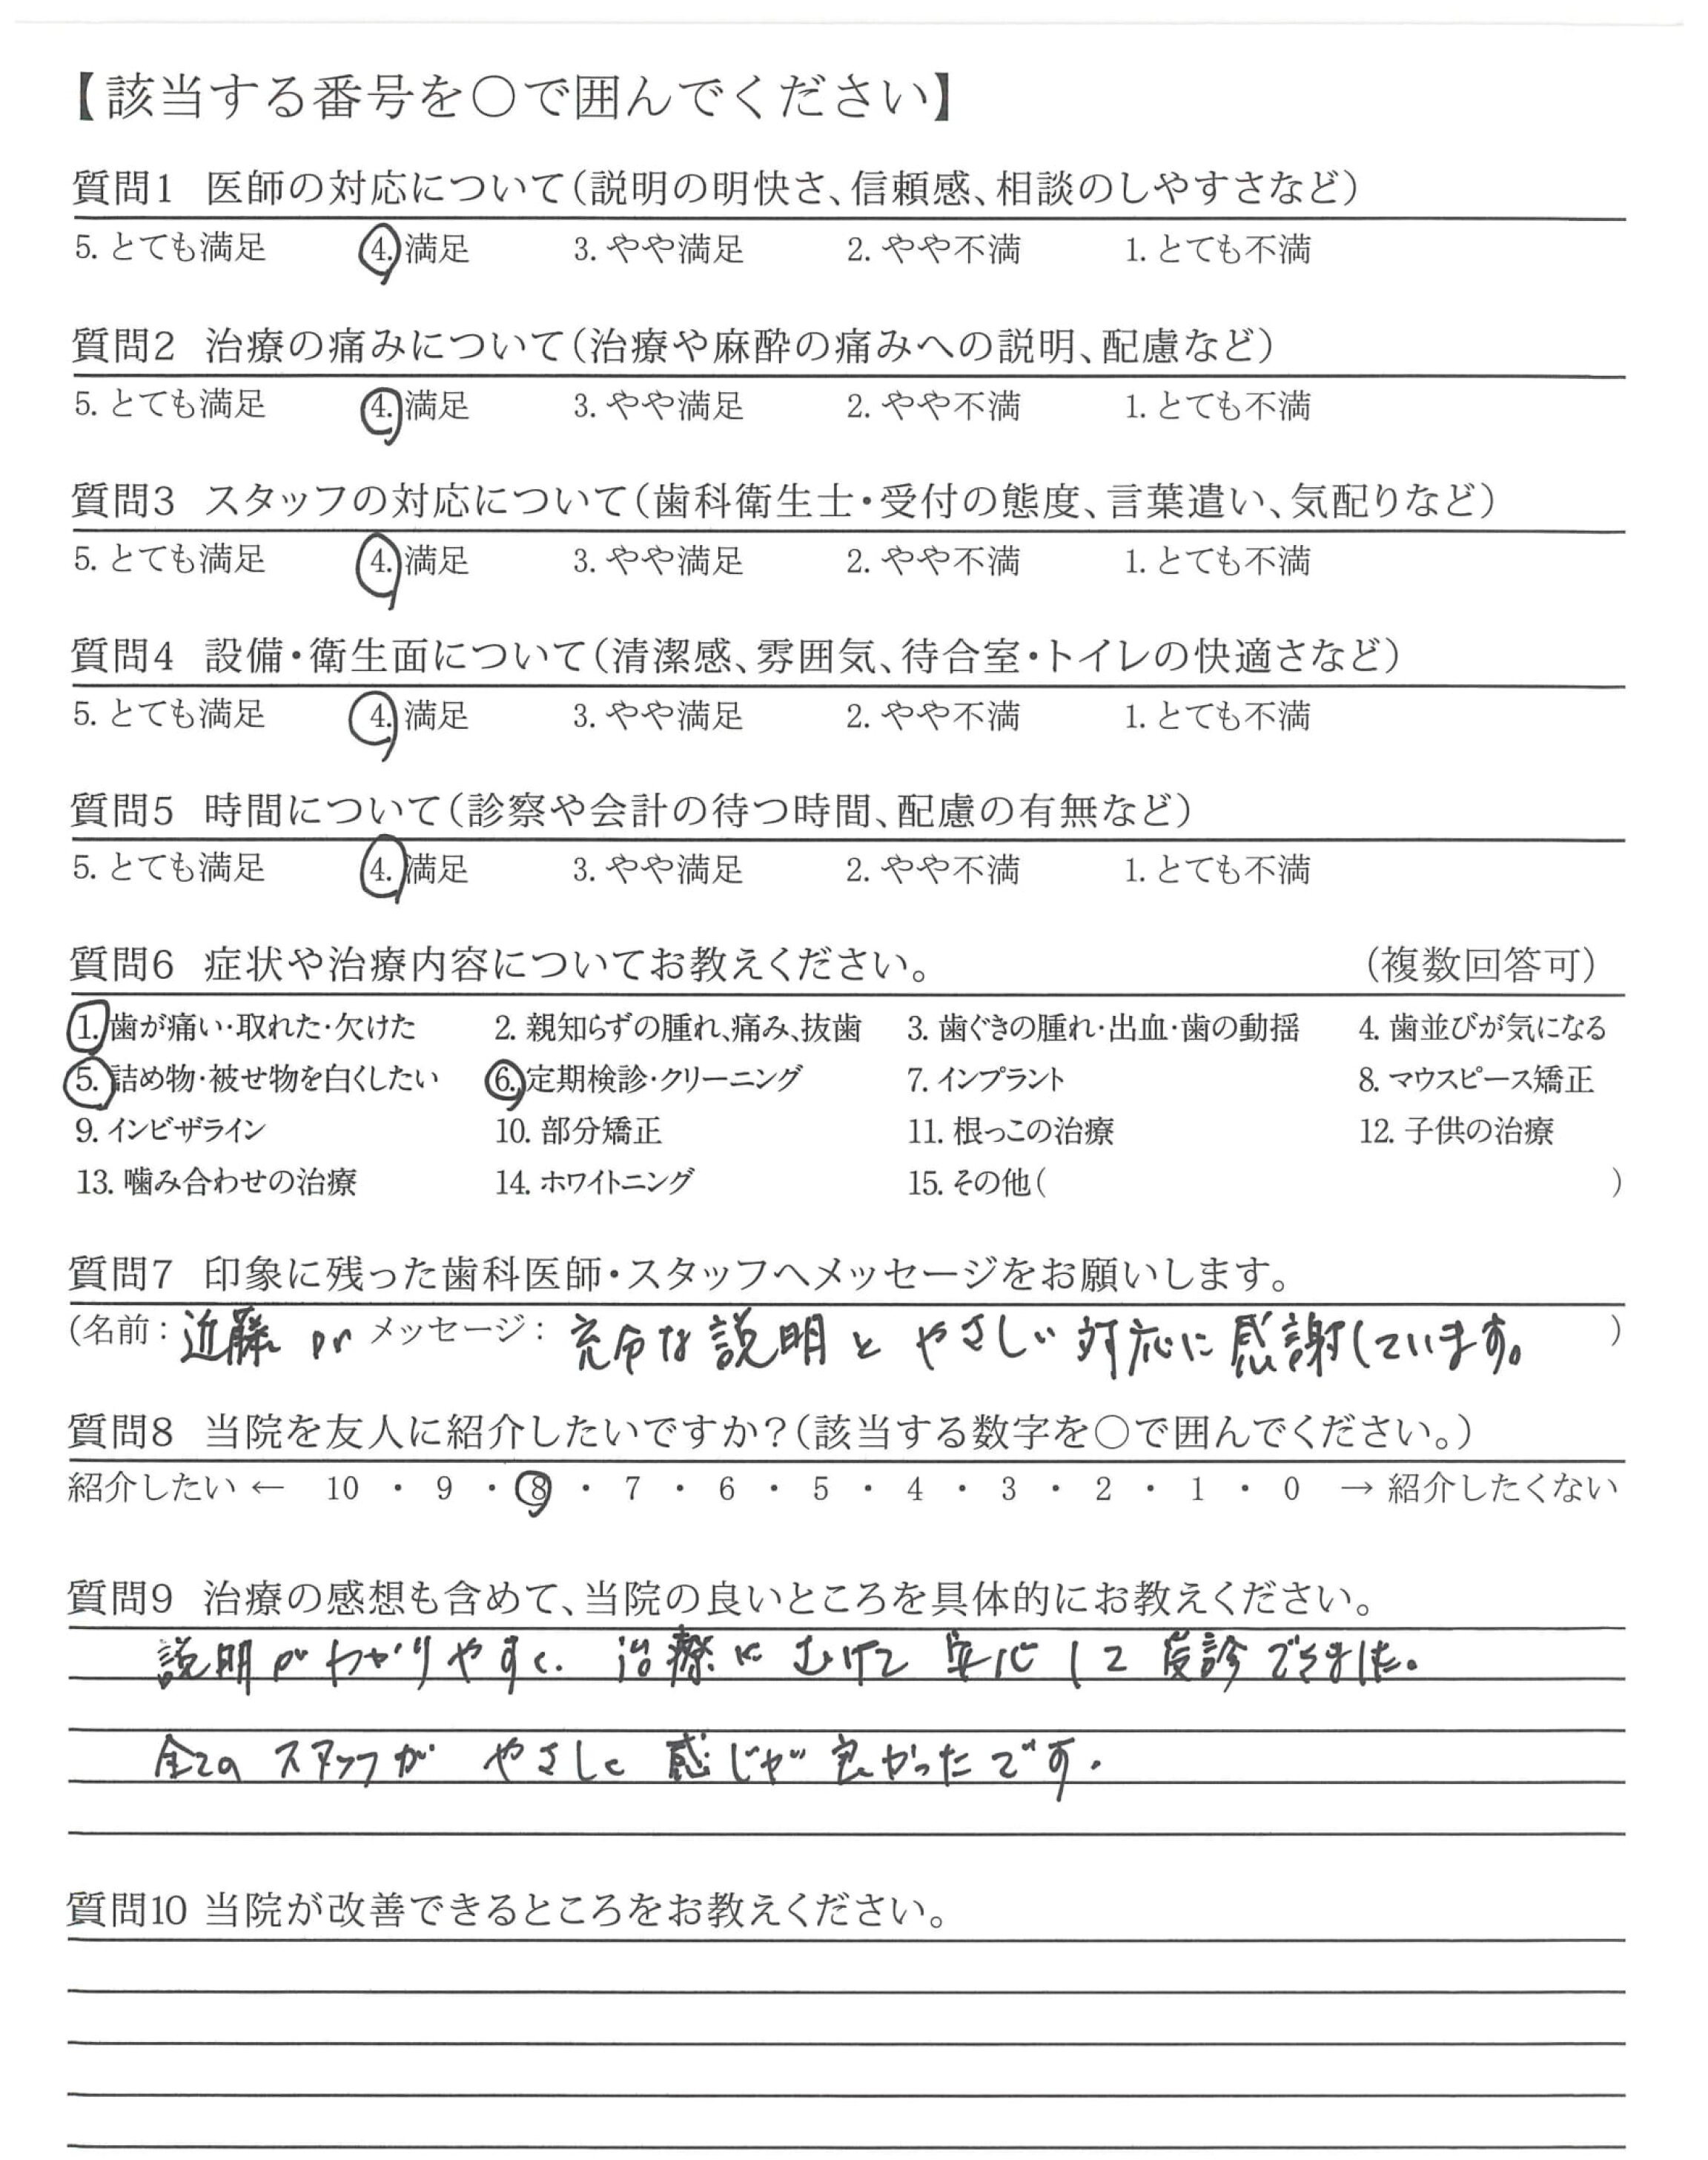 【該当する番号を○で囲んでください】
質問1 医師の対応について(説明の明快さ、信頼感、相談のしやすさなど)
5. とても満足 4. 満足 3. やや満足 2. やや不満 1. とても不満
質問2 治療の痛みについて(治療や麻酔の痛みへの説明、配慮など)
5. とても満足 4. 満足 3. やや満足 2. やや不満 1. とても不満
質問3 スタッフの対応について(歯科衛生士・受付の態度、言葉遣い、気配りなど)
5. とても満足 4. 満足 3. やや満足 2. やや不満 1. とても不満
質問4 設備・衛生面について(清潔感、雰囲気、待合室・トイレの快適さなど)
5. とても満足 4. 満足 3. やや満足 2. やや不満 1. とても不満
質問5 時間について(診察や会計の待つ時間、配慮の有無など)
5. とても満足 4. 満足 3. やや満足 2. やや不満 1. とても不満
質問6 症状や治療内容についてお教えください。 (複数回答可)
1. 歯が痛い・取れた・欠けた 2. 親知らずの腫れ、痛み、抜歯 3. 歯ぐきの腫れ・出血・歯の動揺 4. 歯並びが気になる
5. 詰め物・被せ物を白くしたい 6. 定期検診・クリーニング 7. インプラント 8. マウスピース矯正
9. インビザライン 10. 部分矯正 11. 根っこの治療 12. 子供の治療
13. 噛み合わせの治療 14. ホワイトニング 15. その他( )
質問7 印象に残った歯科医師・スタッフへメッセージをお願いします。
(名前: 近藤 Dr メッセージ: 充分な説明と やさしい対応に感謝しています。 )
質問8 当院を友人に紹介したいですか?(該当する数字を○で囲んでください。)
紹介したい ← 10 ・ 9 ・ 8 ・ 7 ・ 6 ・ 5 ・ 4 ・ 3 ・ 2 ・ 1 ・ 0 → 紹介したくない
質問9 治療の感想も含めて、当院の良いところを具体的にお教えください。
説明がわかりやすく、治療にむけて安心して受診できました。
全てのスタッフが やさしく 感じが良かったです。
質問10 当院が改善できるところをお教えください。